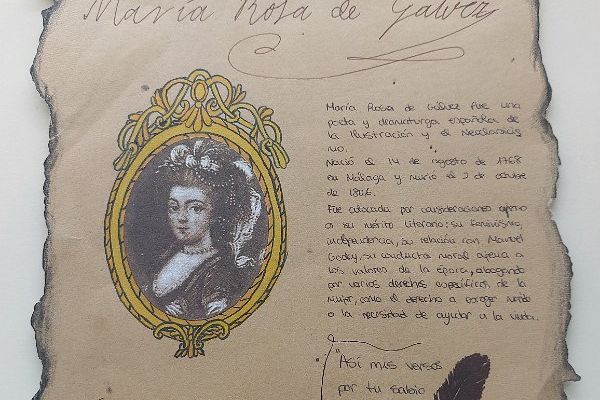 María Rosa de Gálvez
María Rosa de Gálvez fue una
poeta y dramaturga española de
la Ilustración y el Neoclasicis
mo.
Nació el 14 de agosto de 1768
en Málaga y murió el 2 de octubre
de 1806.
Fue atacada por consideraciones ajenas
a su mérito literario: su feminismo,
independencia, su relación con Manuel
Godoy, su conducta moral ajena a
los valores de la época, abogando
por varios derechos específicos de la
mujer, como el derecho a escoger marido
o la necesidad de ayudar a la viuda.
"Así mis versos
por tu sabio